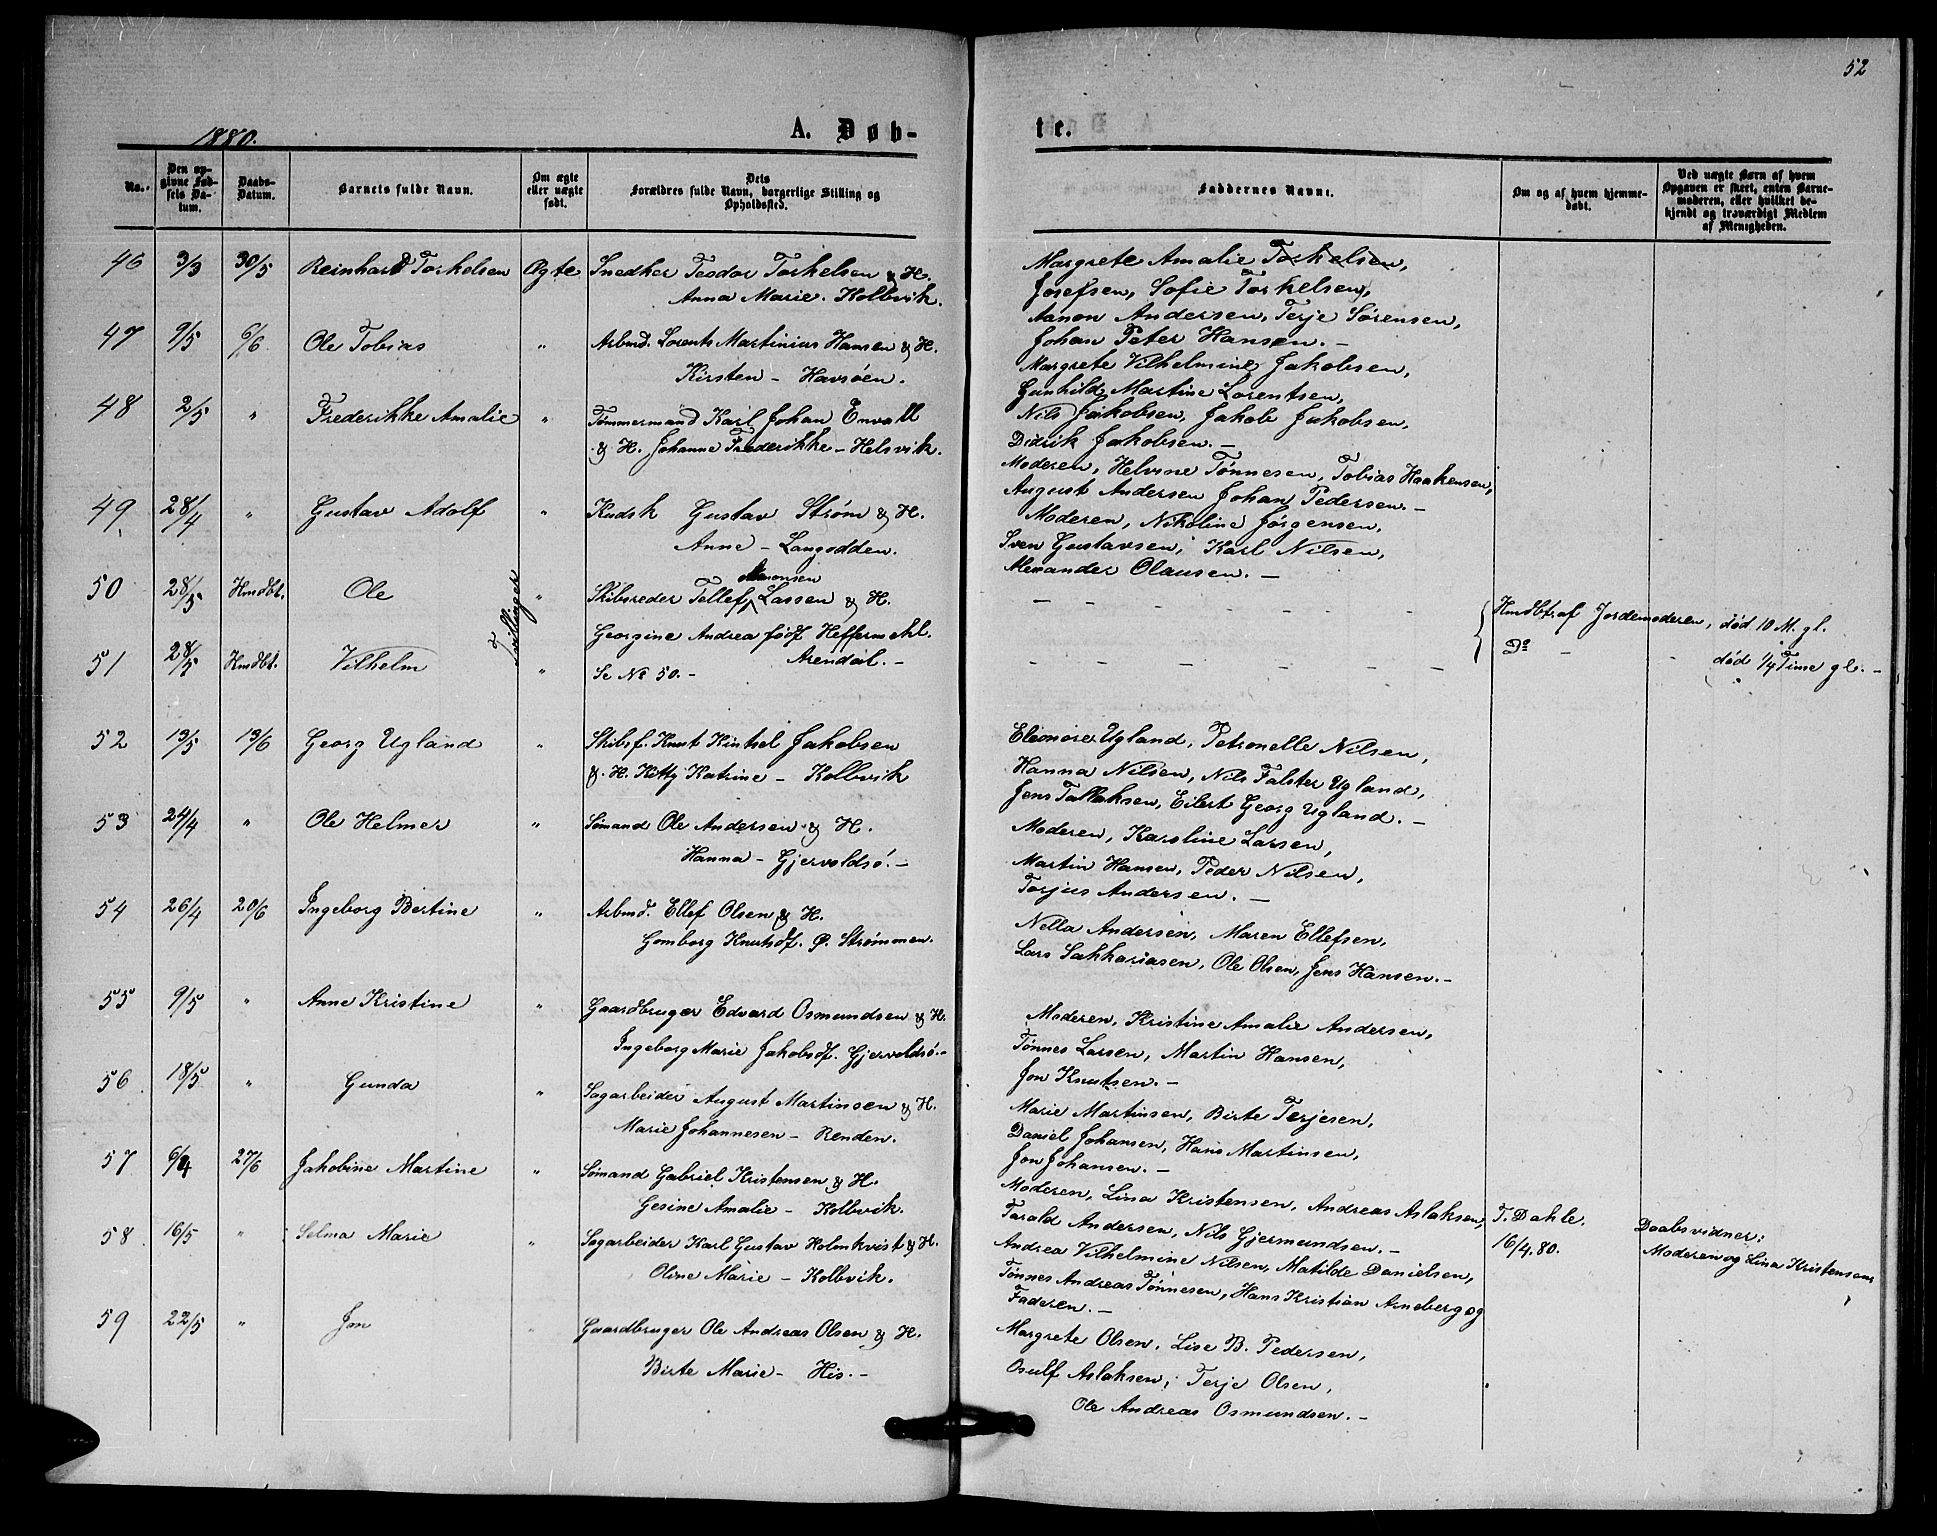 52
1880.
A. Døb-
te.
No.
Den op-
givne Fød-
sels Da-
tum.
Daabs-
Datum.
Barnets fulde Navn.
Om ægte
eller uægte
født.
Dets
Forældres fulde Navn, borgerlige Stilling og
Opholdssted.
Faddernes Navne.
Om og af hvem hjemme-
døbt.
Ved uægte Børn af hvem
Opgaven er skeet, enten Barne-
moderen, eller hvilket be-
kjendt og troværdigt Medlem
af Menigheden.
46 3/3 30/5 Reinhard Torkelsen Ægte Snedker Teodor Torkelsen & H.
Anna Marie. Kolbvik.
Margrete Amalie Torkelsen,
Josefsen, Sofie Torkelsen,
Aanon Andersen, Terje Sørensen,
Johan Peter Hansen. –
47 9/5 6/6 Ole Tobias " Arbmd. Lorents Martinius Hansen & H.
Kirsten – Havsøen.
Margrete Vilhelmine Jakobsen,
Gunhilde Martine Lorentsen,
Nils Jakobsen, Jakob Jakobsen,
Didrik Jakobsen. –
48 2/5 " Frederikke Amalie " Tømmermand Karl Johan Envall
& H. Johanne Frederikke – Helsvik.
Moderen, Helvine Tønnesen, Tobias Haakensen,
August Andersen Johan Pedersen. –
49 28/4 " Gustav Adolf " Kudsk Gustav Strøm & H.
Anne – Langodden.
Moderen, Nikoline Jørgensen,
Sven Gustavsen, Karl Nilsen,
Alexander Olausen. –
50 28/5 Hmdbt. Ole Tvillinger " Skibsreder Tellef Lassen & H.
Georgine Andrea født
Arendal. –
– – – – – – –
Hmdbt. af Jordemoderen, død 10 M. gl.
51 28/5 Hmdbt. Vilhelm " Se No 50. –
– – – – – – –
Do – – død 1/4 Time gl. –
52 13/5 13/6 Georg Ugland " Skibsf. Knut Kintsel Jakobsen
& H. Kitty Katrine – Kolbvik
Eleonore Ugland, Petronelle Nilsen,
Hanna Nilsen, Nils Falster Ugland,
Jens Tallaksen, Eilert Georg Ugland. –
53 24/4 " Ole Helmer " Sømand Ole Andersen & H.
Hanna – Gjervoldsø. –
Moderen, Karoline Larsen,
Martin Hansen, Peder Nilsen,
Torjus Andersen. –
54 26/4 20/6 Ingeborg Bertine " Arbmd. Ellef Olsen & H.
Gomborg Knutsdt. Ø. Strømmen.
Nella Andersen, Maren Ellefsen,
Lars Sakkariasen, Ole Olsen, Jens Hansen. –
55 9/5 " Anne Kristine " Gaardbruger Edvard Osmundsen & H.
Ingeborg Marie Jakobsdt. Gjervoldsø. –
Moderen, Kristine Amalie Andersen,
Tønnes Larsen, Martin Hansen,
Jon Knutsen. –
56 18/5 " Gunda " Sagarbeider August Martinsen & H.
Marie Johannesen – Renden.
Marie Martinsen, Birte Terjesen,
Daniel Johansen, Hans Martinsen,
Jon Johansen. –
57 6/4 27/6 Jakobine Martine " Sømand Gabriel Kristensen & H.
Gesine Amalie – Kolbvik.
Moderen, Lina Kristensen, Andreas Aslaksen,
Tarald Andersen, Nils Gjermundsen. –
T. Dahle.
16/4.80.
Daabsvidner:
Moderen og Lina Kristensen
58 16/5 " Selma Marie " Sagarbeider Karl Gustav Holmkvist & H.
Oline Marie – Kolbvik.
Andrea Vilhelmine Nilsen, Matilde Danielsen,
Tønnes Andreas Tønnesen, Hans Kristian Arneberg og
Faderen. –
59 22/5 " Jon " Gaardbruger Ole Andreas Olsen & H.
Birte Marie – His. –
Margrete Olsen, Lise B. Pedersen,
Osulf Aslaksen, Terje Olsen,
Ole Andreas Osmundsen. –